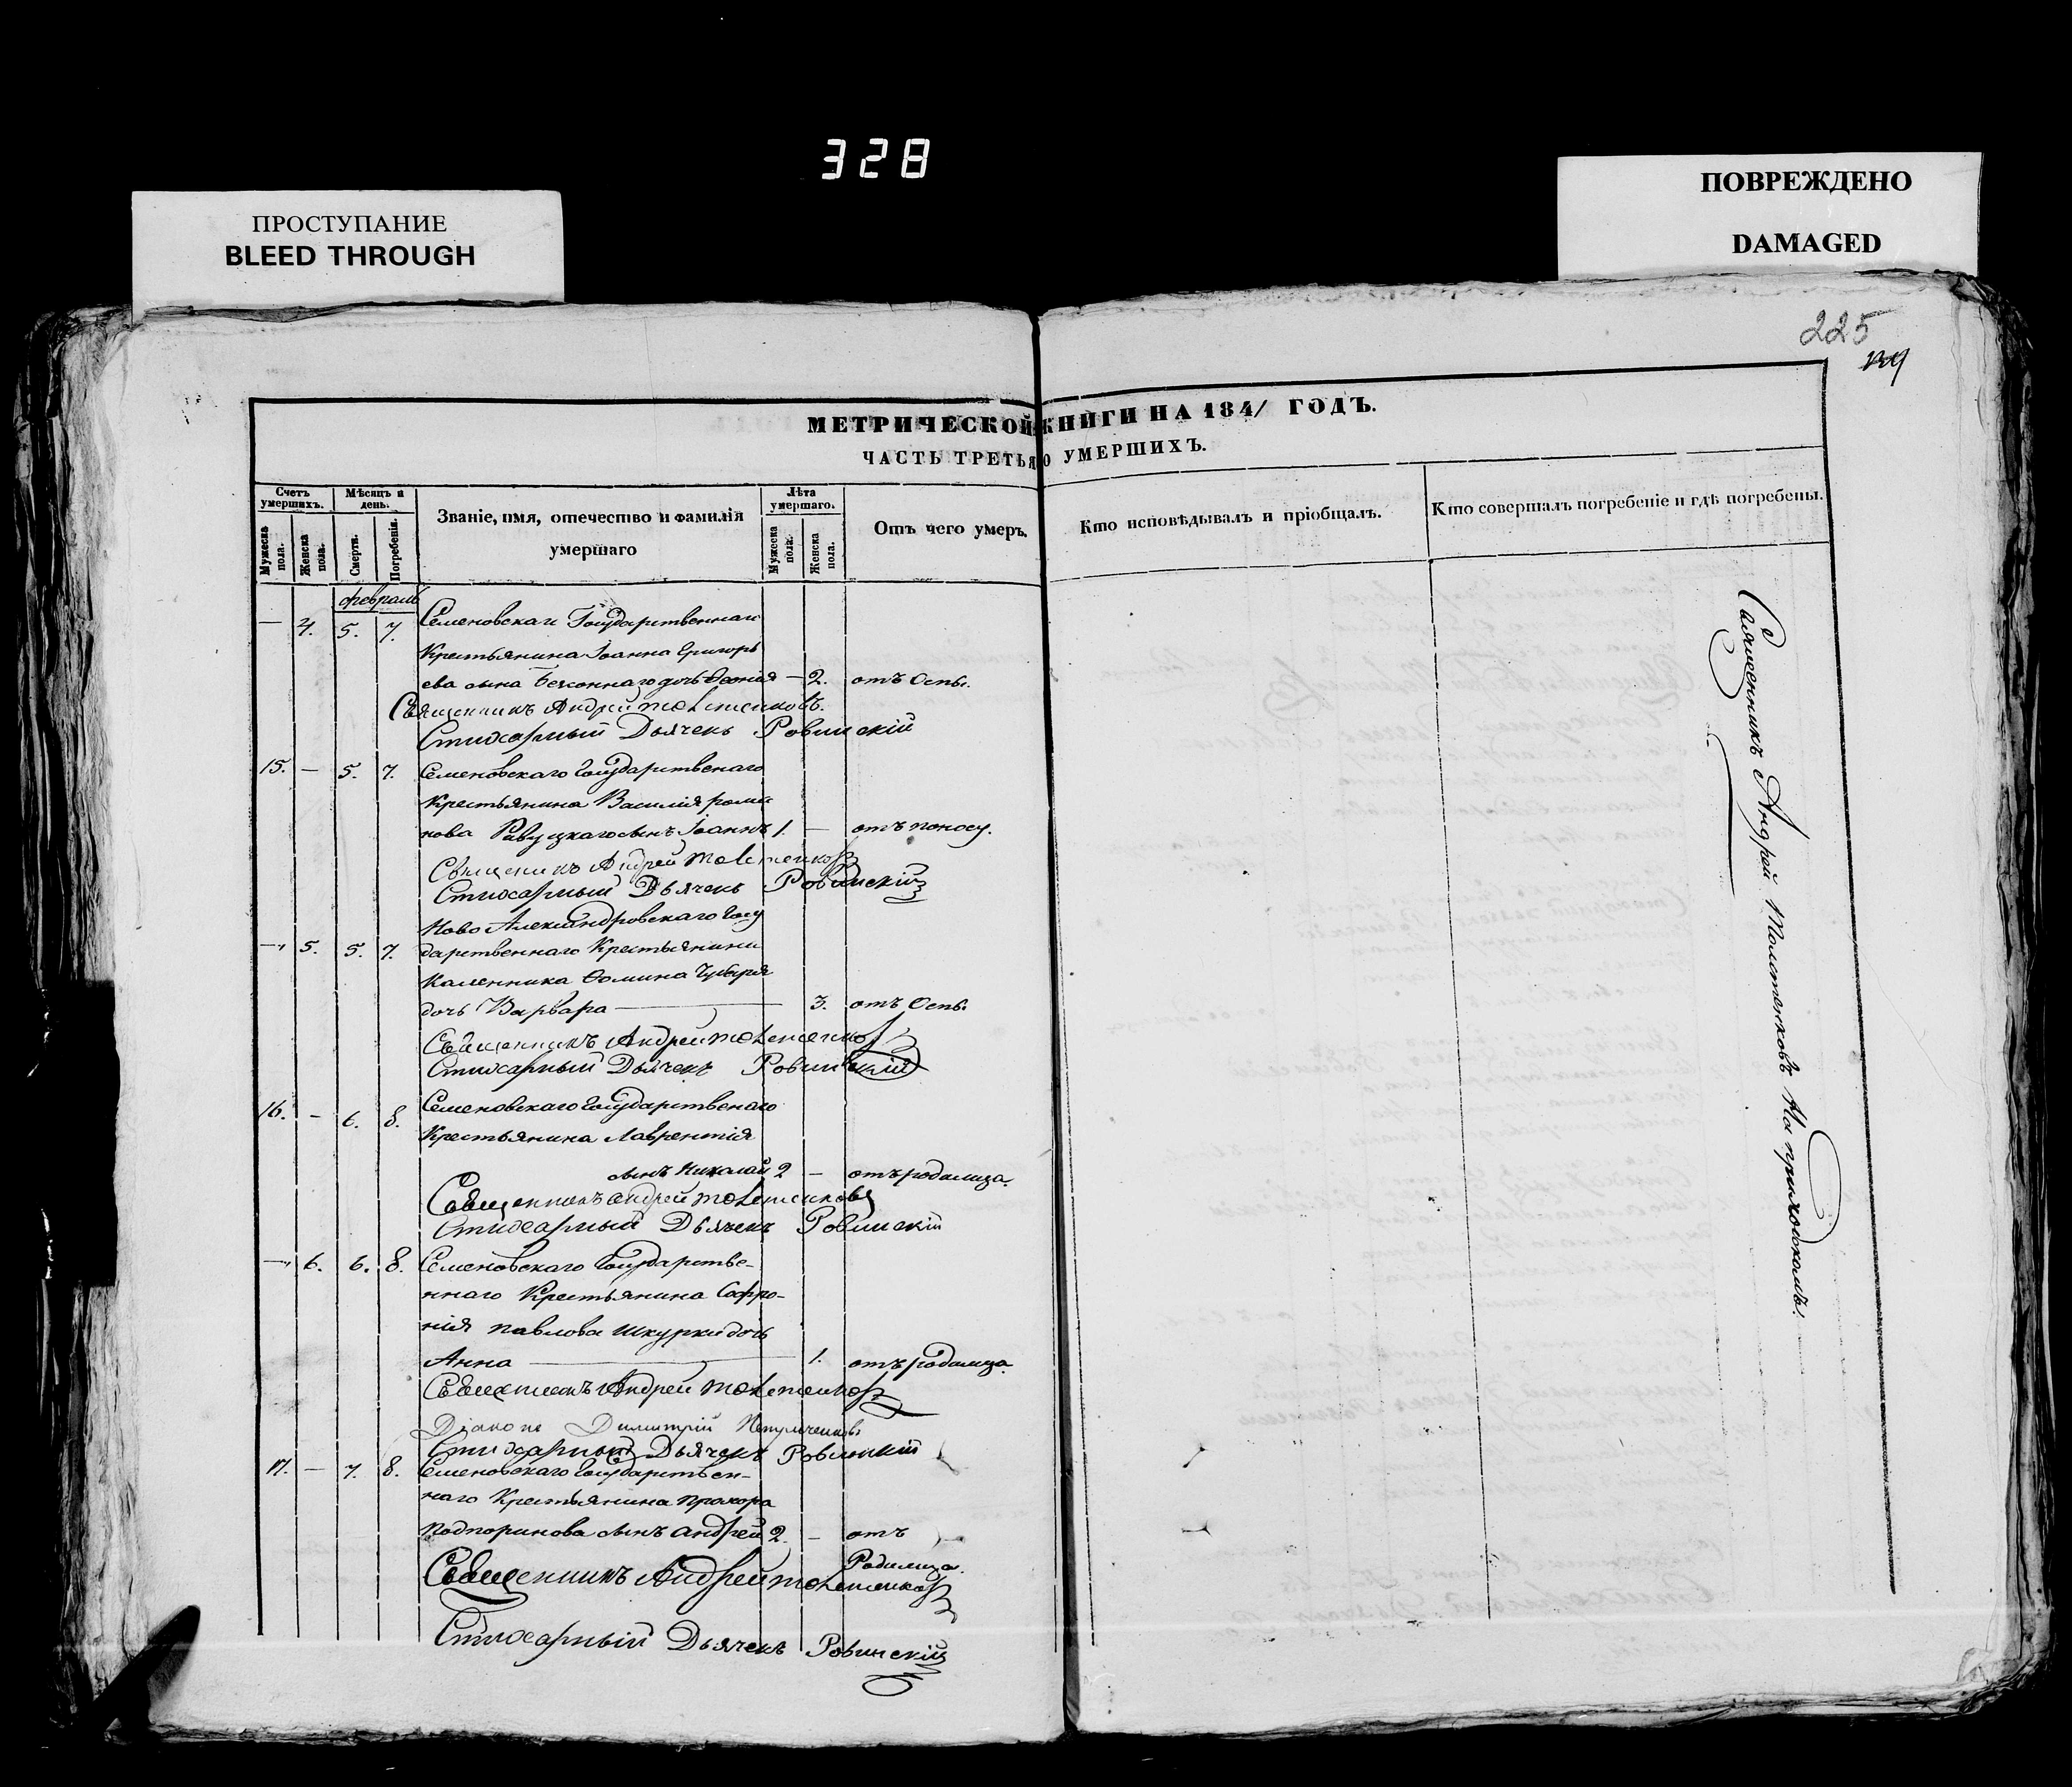 328
ПРОСТУПАНИЕ
BLEED THROUGH
ПОВРЕЖДЕНО
DAMAGED
225
МЕТРИЧЕСКОЙ КНИГИ НА 1841 ГОДЪ.
ЧАСТЬ ТРЕТЬЯ О УМЕРШИХЪ.
Счетъ умершихъ.
Мужеска пола.
Женска пола.
Мѣсяцъ и день.
Смерти.
Погребенія.
Званіе, имя, отечество и фамилія
умершаго
Лѣта умершаго.
Мужеска пола.
Женска пола.
Отъ чего умеръ.
Кто исповѣдывалъ и пріобщалъ.
Кто совершалъ погребеніе и гдѣ погребены.
февраль
— 4. 5. 7. Семеновскаго Государственнаго
Крестьянина Іоанна Григорь
ева сына дочь — 2. отъ Оспы.
Священникъ Андрей Толстенковъ.
Стихарный Дьячекъ Ровинскій
15. — 5. 7. Семеновскаго Государственаго
Крестьянина Василія рома
нова сынъ Іоаннъ 1. — отъ поносу.
Священникъ Андрей Толстенковъ
Стихарный Дьячекъ Ровинскій
Ново Александровскаго Госу
— 5. 5. 7. дарственнаго Крестьянина
Каленника Ѳомина
дочь Варвара — 3. отъ Оспы
Священникъ Андрей Толстенковъ
Стихарный Дьячекъ Ровинскій
16. — 6. 8. Семеновскаго Государственаго
Крестьянина Лаврентія
сынъ Николай 2 — отъ родимца.
Священникъ Андрей Толстенковъ
Стихарный Дьячекъ Ровинскій
— 6. 6. 8. Семеновскаго Государстве-
ннаго Крестьянина Софро-
нія павлова Шкурки дочь
Анна — 1. отъ родимца.
Священникъ Андрей Толстенковъ
Діаконъ Димитрій
Стихарный Дьячекъ Ровинскій
17. — 7. 8. Семеновскаго Государствен-
наго Крестьянина прохора
Подпоринова сынъ Андрей 2. — отъ
Родимца.
Священникъ Андрей Толстенковъ
Стихарный Дьячекъ Ровинскій
Священникъ Андрей Толстенковъ На приходскомъ.